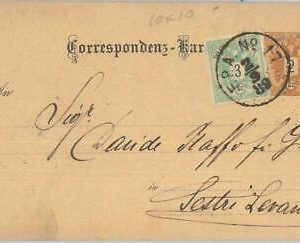 10x10
Correspondenz-Kar
F.P.A. No 17
3
2
An
Sigr
Davide Raffo fu G
in
Sestri Levan